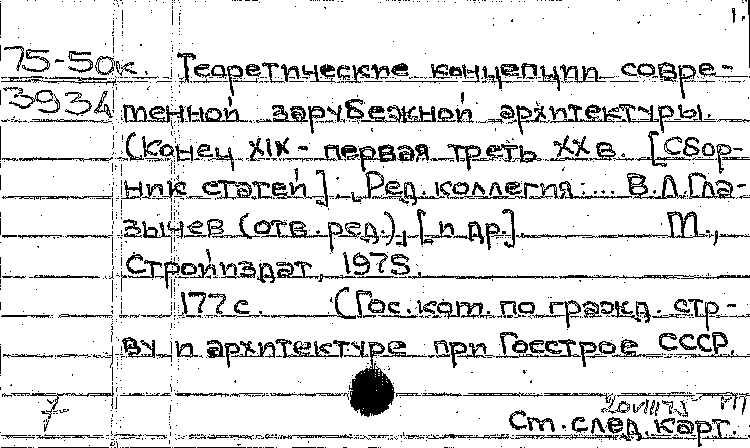 1.
75-50к. Теоретические концепции совре-
3934 менной зарубежной архитектуры.
(Конец XIX - первая треть XX в. [Сбор-
ник статей]. Ред. коллегия:... В.Л.Гла-
зычев (отв. ред.), [и др.]. М.,
Стройиздат, 1975.
177 с. (Гос. ком. по гражд. стр-
ву и архитектуре при Госстрое СССР.
7
См. след. карт.